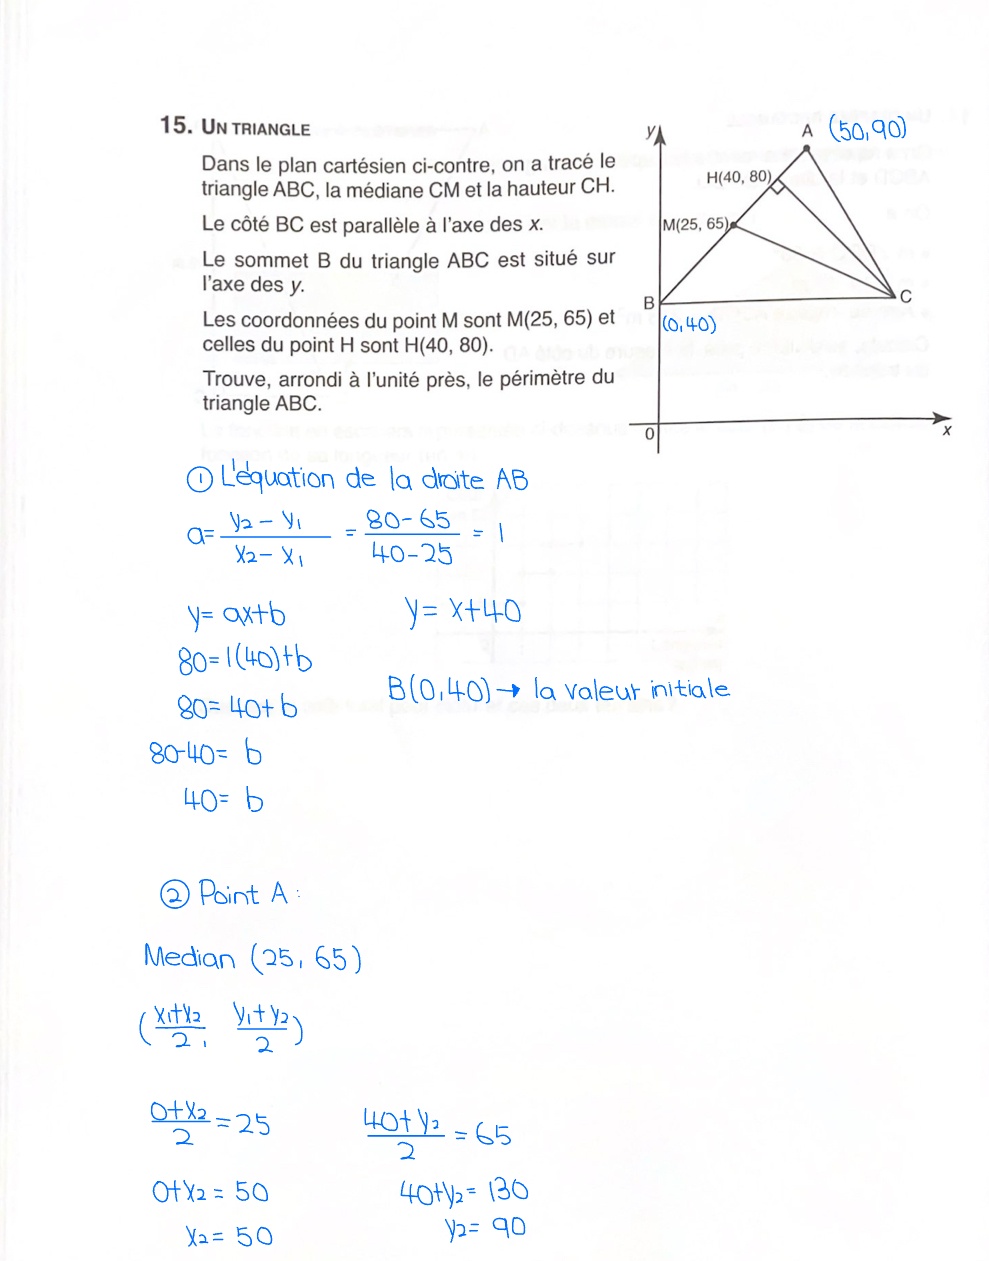 15. UN TRIANGLE
Dans le plan cartésien ci-contre, on a tracé le
triangle ABC, la médiane CM et la hauteur CH.
Le côté BC est parallèle à l'axe des x.
Le sommet B du triangle ABC est situé sur
l'axe des y.
Les coordonnées du point M sont M(25, 65) et
celles du point H sont H(40, 80).
Trouve, arrondi à l'unité près, le périmètre du
triangle ABC.
y
A (50,90)
H(40, 80)
M(25, 65)
B
C
(0,40)
0
x
① L'équation de la droite AB
a= y2 - y1 / x2 - x1 = 80-65 / 40-25 = 1
y= ax+b
y= x+40
80=1(40)+b
B(0,40)→ la valeur initiale
80= 40+b
80-40= b
40= b
② Point A :
Median (25, 65)
(x1+x2 / 2, y1+y2 / 2)
0+x2 / 2 = 25
40+y2 / 2 = 65
0+x2 = 50
40+y2= 130
x2= 50
y2= 90